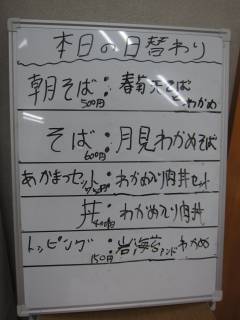 本日の日替わり
朝そば:春菊天そば
500円 わかめ
そば:月見わかめそば
600円
あかまつセット:わかめ入り肉丼セット
丼:わかめ入り肉丼
トッピング:岩海苔アンドわかめ
150円